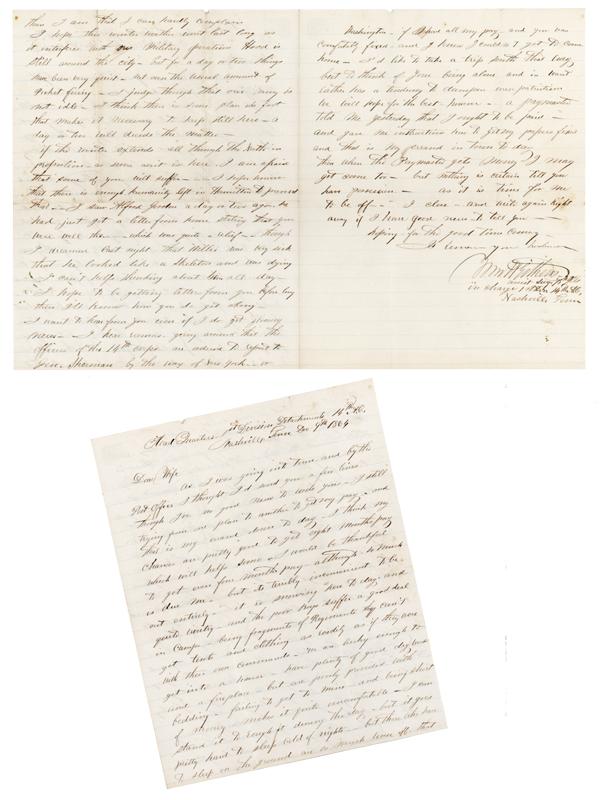 Head Quarters 1st Division Detachments 14th A.C.
Nashville Tenn Dec 9th 1864
Dear Wife
As I was going into town and by the
Post Office I thought I'd send you a few lines
though I've no good news to write you - I still
trying from one place to another to get my pay - and
that is my errand down to day - I think my
chances are pretty good to get eight months pay
which will help some - I would be thankful
to get even four months pay although so much
is due me - but its terribly inconvenient to be
out entirely - it is snowing here to day and
quite wintry - and the poor boys suffer a good deal
in Camp - being fragments of Regiments they can't
get tents and clothing as readily as if they were
with their own commands - I'm lucky enough to
get into a house - have plenty of good
and a fireplace - but are poorly provided with
bedding - failing to get to mine - and being short
of money makes it quite uncomfortable - I can
stand it to rough it during the day - but it goes
pretty hard to sleep cold of nights - but those who have
to sleep on the ground are so much worse off that
than I am that I can hardly complain
I hope this winter weather wont last long as
it interferes with our Military operations Hood is
still around the city - but for a day or two things
have been very quiet - not even the usual amount of
Picket firing - I judge though that our may is
not idle - I think there is some plan
that makes it necessary to keep still here - a
day or two will decide the matter -
if this winter extends all through the North in
proportion as severe as it is here I am afraid
that some of you will suffer - I hope however
that there is enough humanity left in to prevent
that - I saw Alfred Jordan a day or two ago he
had just got a letter from home stating that you
were well then - which was quite a relief - though
I dreamed last night that Willie was very sick
that he looked like a skeleton and was dying
I can't help thinking about him all day -
I hope to be getting letters from you before long
then I'll know how you do get along -
I want to hear from you even if I do get
news - I hear rumors going around that the
officers of the 14th corps are ordered to report to
Gen. Sherman by the way of New York - or
Washington - if I had all my pay - and you was
comfortably fixed - and I knew I could get to come
home - I'd like to take a trip North that way,
but to think of you being alone and in want
rather has a tendency to dampen our patriotism
We will hope for the best however - a paymaster
told me yesterday that I ought to be paid -
and gave me instructions how to get my papers fixed
and that is my errand in town to day
then when the Paymaster gets money I may
get some too - but nothing is certain till you
have possession - as it is time for me
to be off - I close - and write again right
away if I have good news to tell you -
hoping for the good time coming -
I remain your husband
Asst Surg
in charge 1st Div 14th AC
Nashville Tenn